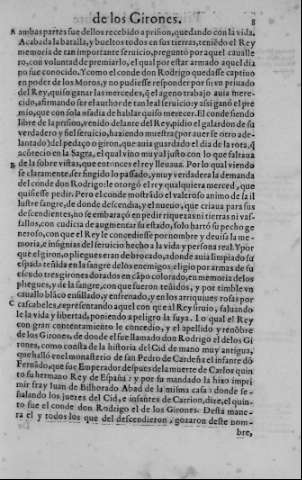 de los Girones. 8
A ambas partes fue dellos recebido a prisõn, quedando con la vida.
Acabada la batalla, y bueltos todos en sus tierras, teniẽdo el Rey
memoria de tan importante seruicio, preguntò por aquel cauallero,
con voluntad de premiarlo, el qual por estar armado aquel dia
no fue conocido. Y como el conde don Rodrigo quedasse captiuo
en poder de los Moros, y no pudiesse responder por si: vn priuado
del Rey, quiso ganar las mercedes, q̃ el ageno trabajo auia merecido,
afirmando ser el author de tan leal seruicio: y assi ganò el premio,
que con sola astucia de hablar quiso merecer. El conde siendo
libre de la prisiõn, venido delante del Rey, pidio el galardon de su
verdadero y fiel seruicio, haziendo muestra (por auer se otro adelantado)
del pedaço o giron, que auia guardado el dia de la rota, q̃
acontecio en la Sagra, el qual vino muy al justo con lo que faltaua
B de la sobre viñas, que entonces el rey lleuaua. Por lo qual viendo
se claramente, ser fingido lo passado, y muy verdadera la demanda
del conde don Rodrigo: le otorgò el rey qualquiera merced, que
quisiesse pedir. Pero el conde mostrãdo el valeroso animo de la illustre
sangre, de donde descendia, y el nueuo, que criaua para sus
descendientes, no se embaraçò en pedir riquezas ni tierras ni vassallos,
con cudicia de augmentar su estado, solo harto su pecho generoso,
con que el Rey le concediesse por nombre y deuisa la memoria,
e insignias del seruicio hecho a la vida y persona real. Y por
que el giron, o pliegues eran de brocado, adonde auia limpiado su
espada teñida en la sangre de los enemigos: eligio por armas de su
escudo tres girones dorados en cãpo colorado, en memoria de los
pliegues, y de la sangre, con que fueron teñidos, y por timble vn
cauallo blãco ensillado, y enfrenado, y en los arriquiues rosas por
C cascabeles, representando aquel con que al Rey siruio, saluando
le la vida y libertad, poniendo a peligro la suya. Lo qual el Rey
con gran contentamiento le concedio, y el apellido y renõbre
de los Girones, de donde el fue llamado don Rodrigo el de los Girones,
como consta de la historia del Cid de mano muy antigua,
que hallò en el monasterio de san Pedro de Cardeña el infante dõ
Fernãdo, que fue Emperador despues de la muerte de Carlos quinto
su hermano Rey de España: y por su mandado la hizo imprimir
fray Iuan de Bilhorado Abad de la misma casa: donde señalando
los juezes del Cid, e infantes de Carrion, dize, el quinto
fue el conde don Rodrigo el de los Girones. Desta manera
el y todos los que del descendieron, gozaron deste nom-
bre,